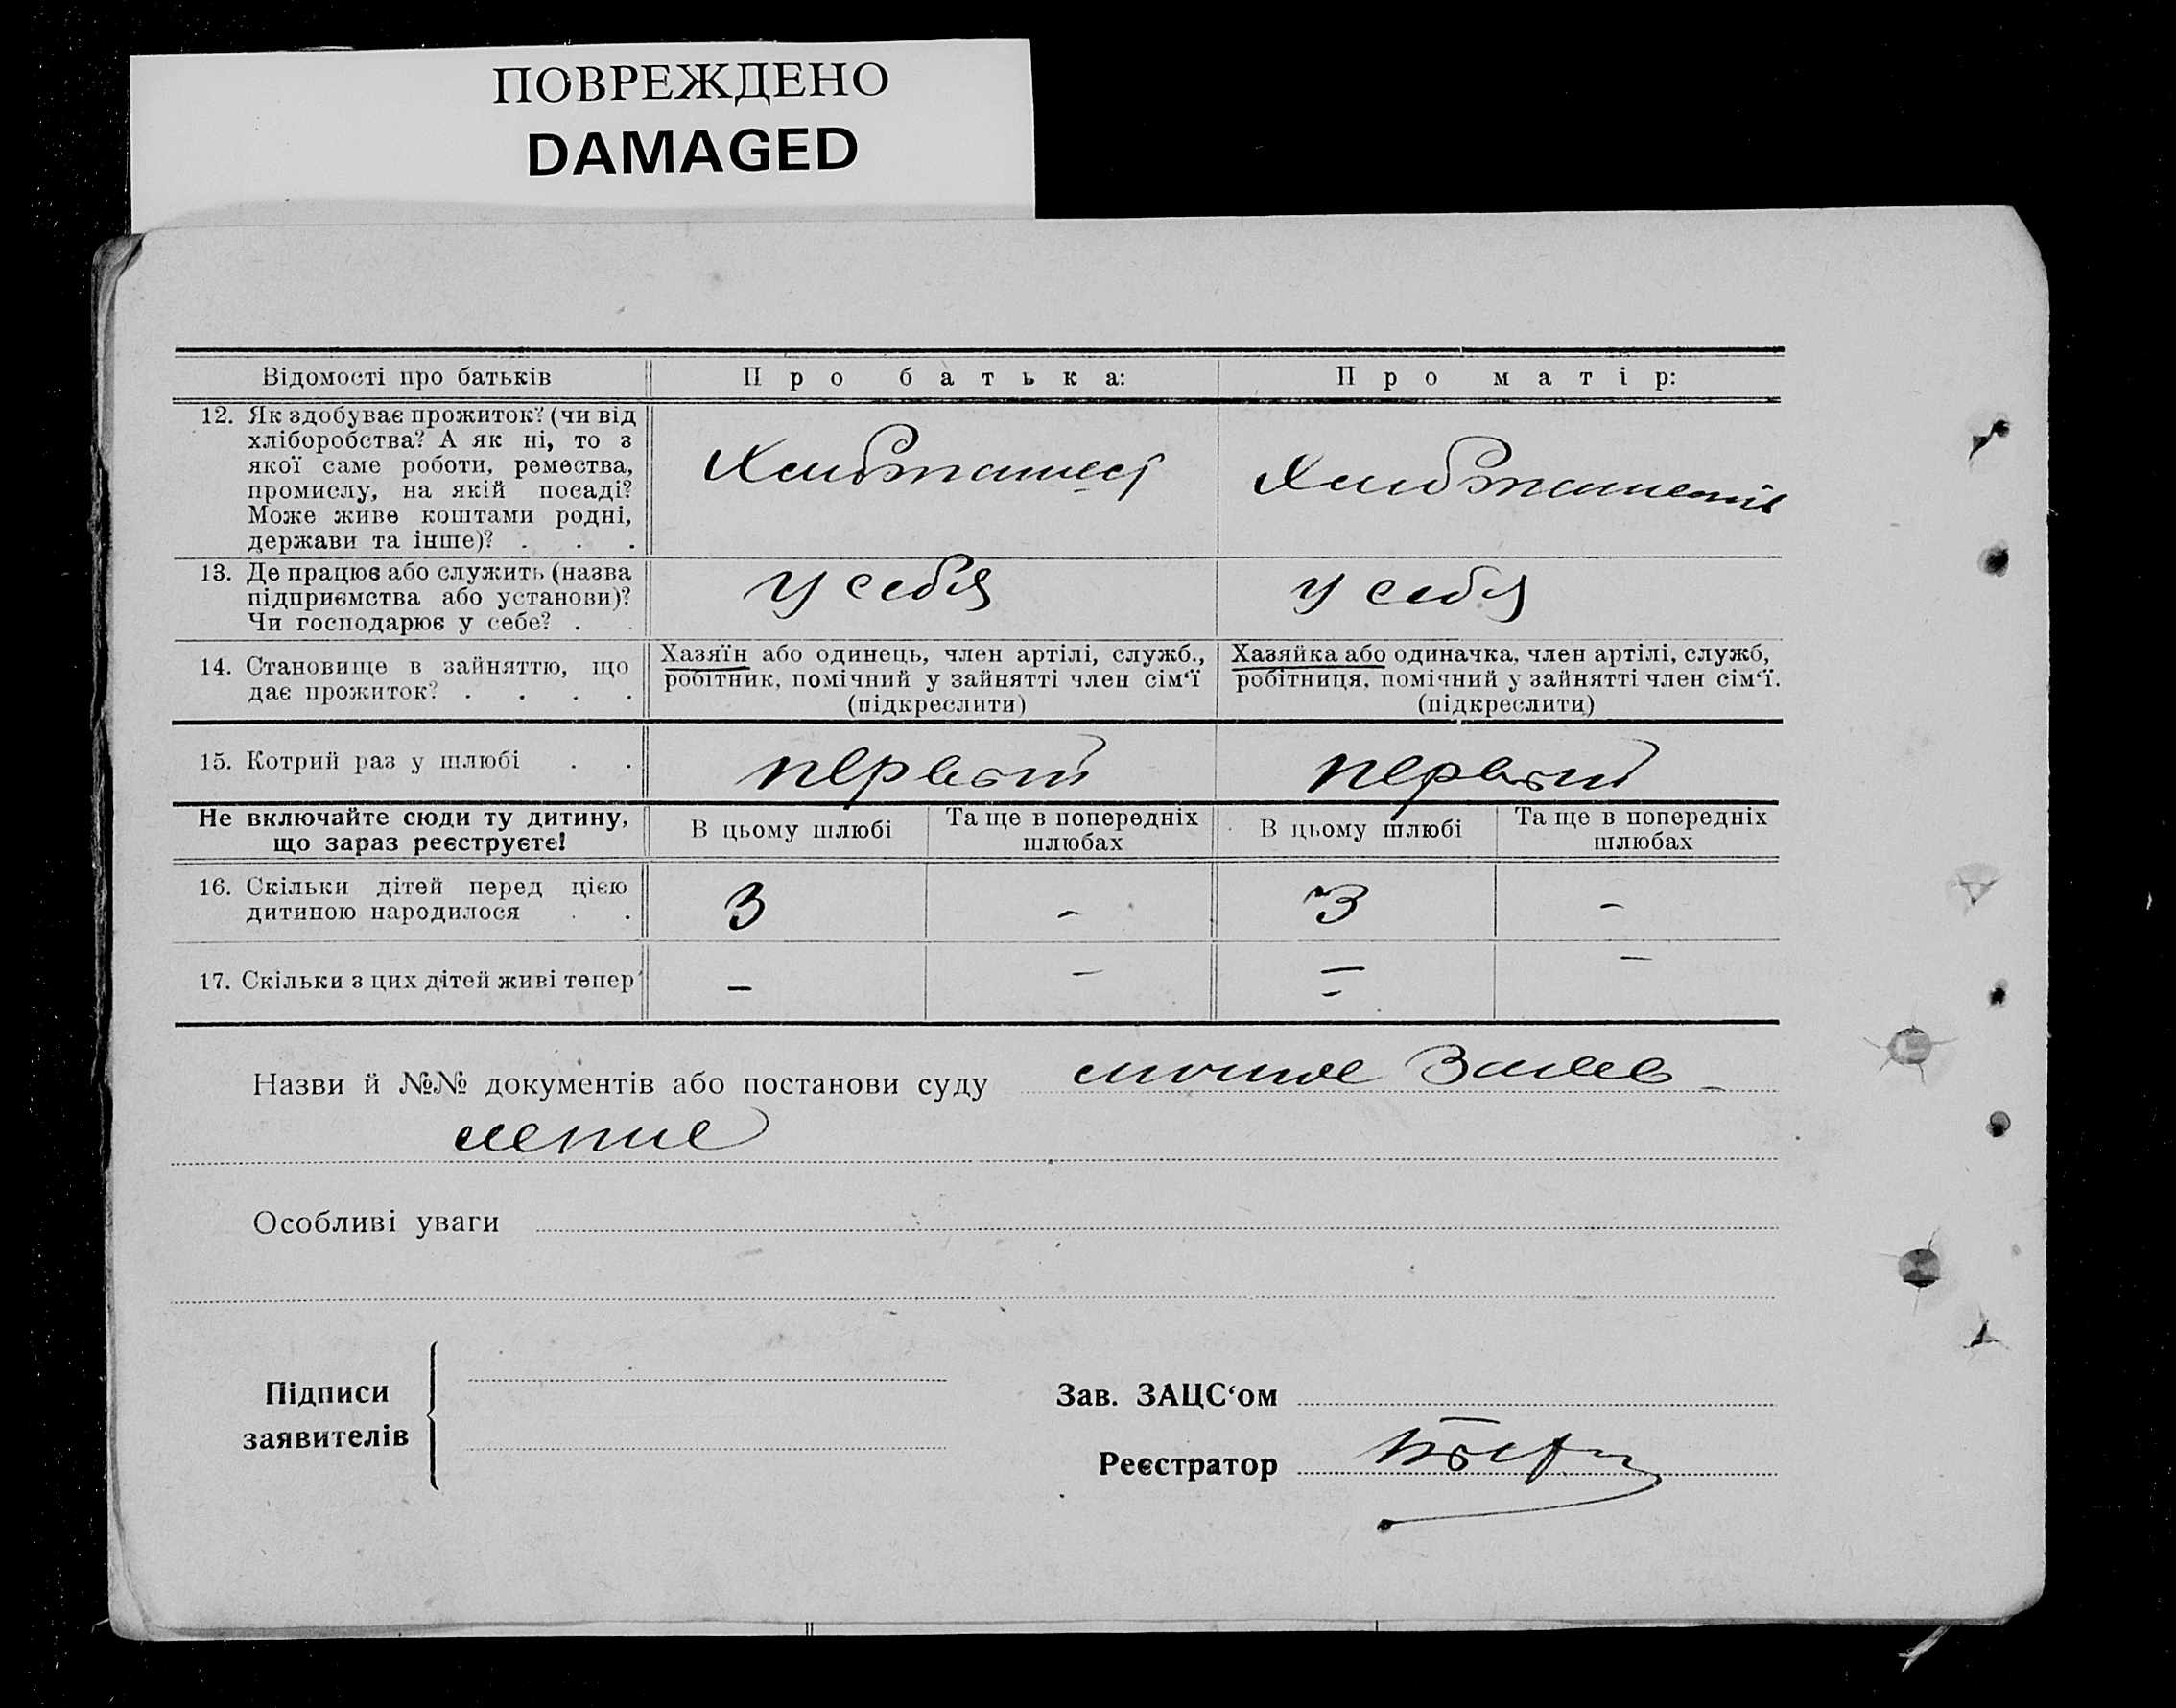 ПОВРЕЖДЕНО
DAMAGED
Відомості про батьків
Про батька:
Про матір:
12. Як здобуває прожиток? (чи від
хліборобства? А як ні, то з
якої саме роботи, ремества,
промислу, на якій посаді?
Може живе коштами родні,
держави та інше)? . . .
13. Де працює або служить (назва
підприємства або установи)?
Чи господарює у себе? . .
у себя
у себя
14. Становище в зайняттю, що
дає прожиток? . . . .
Хазяїн або одинець, член артілі, служб.,
робітник, помічний у зайнятті член сім‘ї
(підкреслити)
Хазяйка або одиначка, член артілі, служб,
робітниця, помічний у зайнятті член сім‘ї.
(підкреслити)
15. Котрий раз у шлюбі . .
первый
первый
Не включайте сюди ту дитину,
що зараз реєструєте!
В цьому шлюбі
Та ще в попередніх
шлюбах
В цьому шлюбі
Та ще в попередніх
шлюбах
16. Скільки дітей перед цією
дитиною народилося . .
3
-
3
-
17. Скільки з цих дітей живі тепер
-
-
-
-
Назви й №№ документів або постанови суду личное Заяв-
ление
Особливі уваги
Підписи
заявителів
Зав. ЗАЦС‘ом
Реєстратор